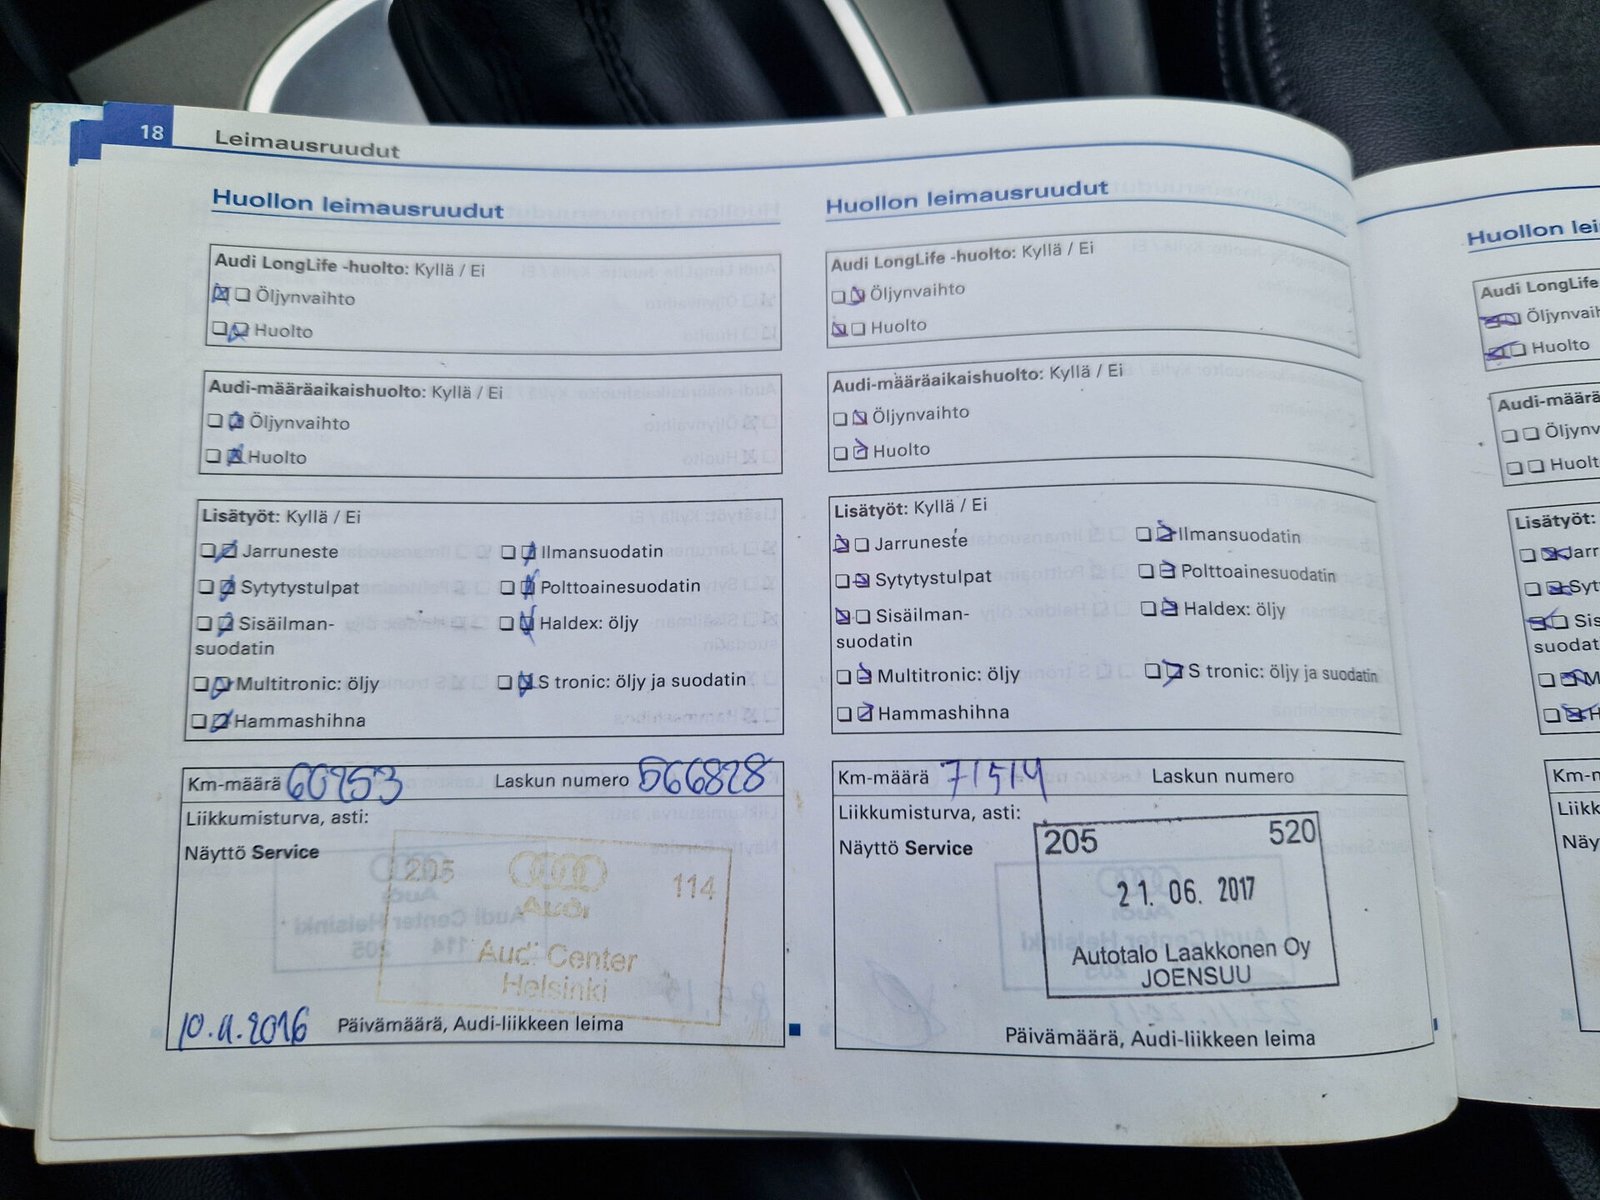 18 Leimausruudut
Huollon leimausruudut
Audi LongLife -huolto: Kyllä / Ei
Öljynvaihto
Huolto
Audi-määräaikaishuolto: Kyllä / Ei
Öljynvaihto
Huolto
Lisätyöt: Kyllä / Ei
Jarruneste
Ilmansuodatin
Sytytystulpat
Polttoainesuodatin
Sisäilman-
suodatin
Haldex: öljy
Multitronic: öljy
S tronic: öljy ja suodatin
Hammashihna
Km-määrä 60253
Laskun numero 566828
Liikkumisturva, asti:
Näyttö Service
205 114
Audi
Audi Center
Helsinki
10.11.2016 Päivämäärä, Audi-liikkeen leima
Huollon leimausruudut
Audi LongLife -huolto: Kyllä / Ei
Öljynvaihto
Huolto
Audi-määräaikaishuolto: Kyllä / Ei
Öljynvaihto
Huolto
Lisätyöt: Kyllä / Ei
Jarruneste
Ilmansuodatin
Sytytystulpat
Polttoainesuodatin
Sisäilman-
suodatin
Haldex: öljy
Multitronic: öljy
S tronic: öljy ja suodatin
Hammashihna
Km-määrä 71514
Laskun numero
Liikkumisturva, asti:
Näyttö Service
205 520
21. 06. 2017
Autotalo Laakkonen Oy
JOENSUU
Päivämäärä, Audi-liikkeen leima
Huollon lei
Audi LongLife
Öljynvaih
Huolto
Audi-määrä
Öljynv
Huolt
Lisätyöt:
Jarr
Syt
Sis
suodat
M
H
Km-m
Liikk
Näy